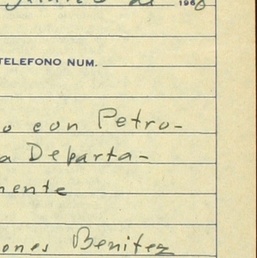 196
TELEFONO NUM.
o con Petro-
a Departa-
mente
ones Benitez